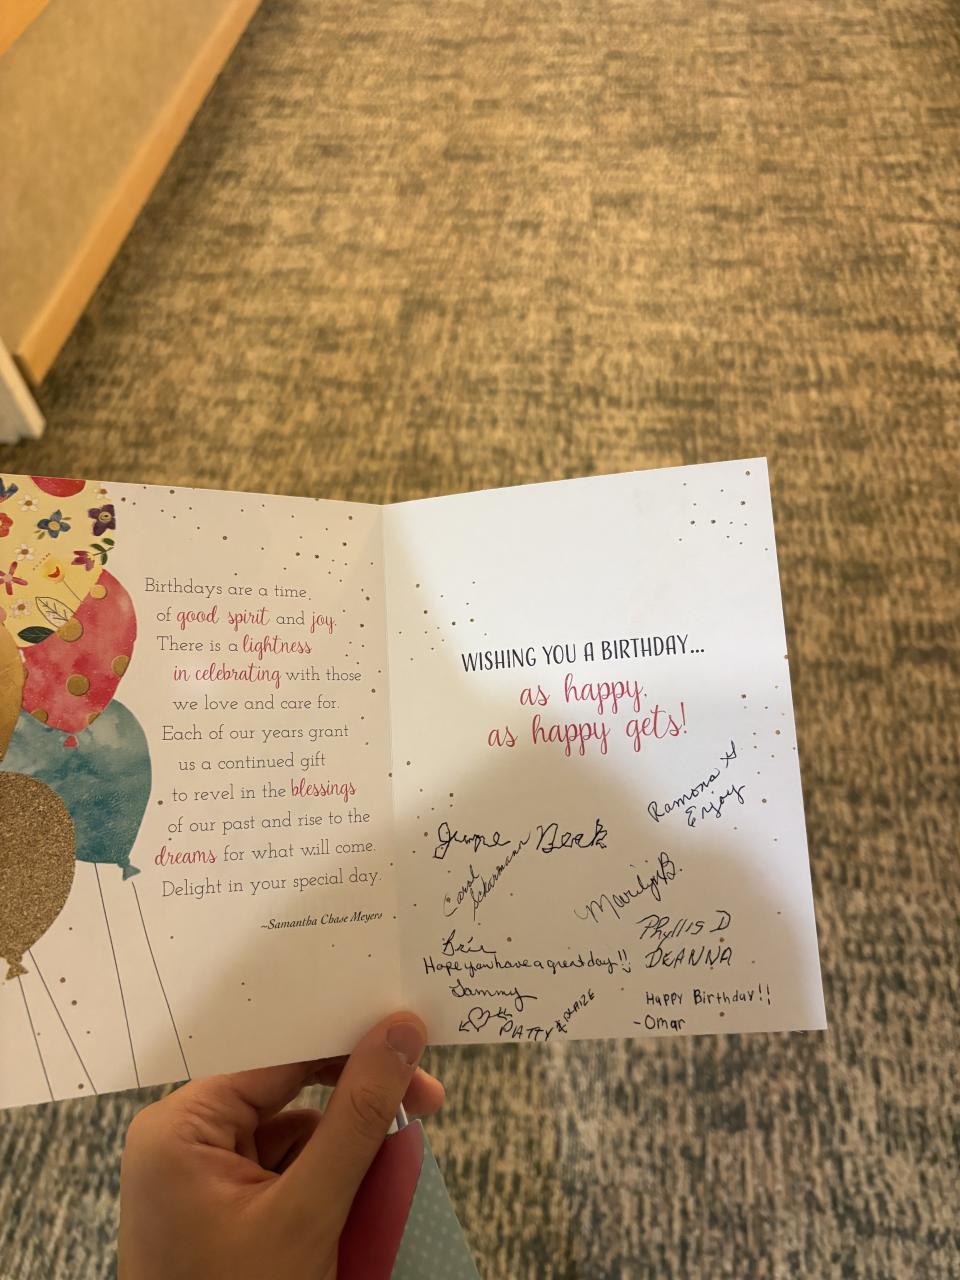 Birthdays are a time,
of good spirit and joy.
There is a lightness
in celebrating with those
we love and care for.
Each of our years grant
us a continued gift
to revel in the blessings
of our past and rise to the
dreams for what will come.
Delight in your special day.
~Samantha Chase Meyers
WISHING YOU A BIRTHDAY...
as happy,
as happy gets!
Ramona
Enjoy
Carol
Ackermann
Marilyn B.
Phyllis D
DEANNA
Brie
Hope you have a great day!!
Tammy
PATTY &
Happy Birthday!!
-Omar